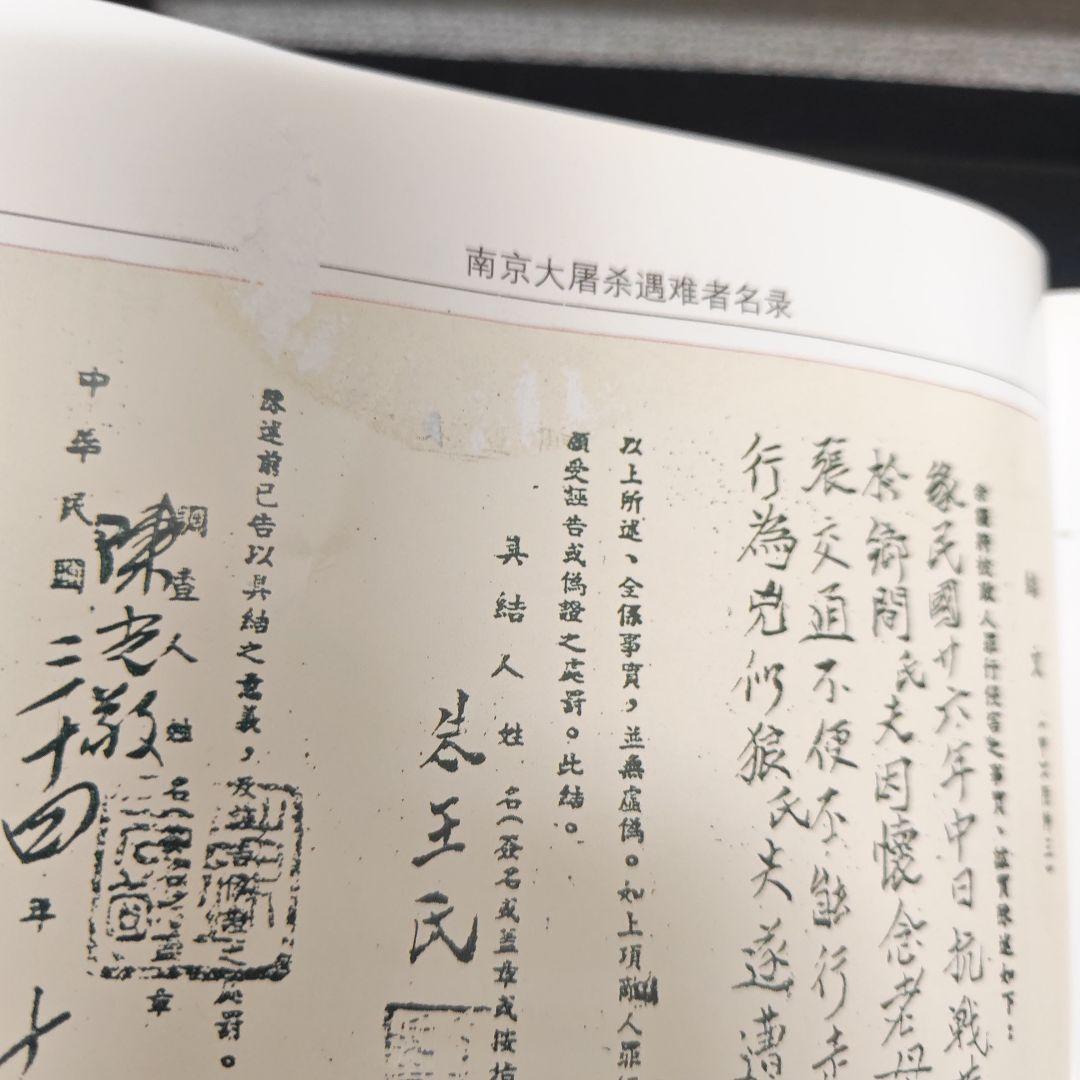 南京大屠杀遇难者名录
結文
具結人將被敵人罪行侵害之事實、據實陳述如下：
緣民國廿六年中日抗戰
於鄉間氏夫因懷念老母
張交通不便不能行走
行為兇似狼氏夫遂遭
以上所述、全係事實，並無虛偽。如上項敵人罪
願受誣告或偽證之處罰。比結。
具結人姓名（簽名或蓋章或按指
朱王氏
陳述前已告以具結之意義，及誣告偽證之處罰。
調查人姓名
章
陳光敬
中華民國三十四年十